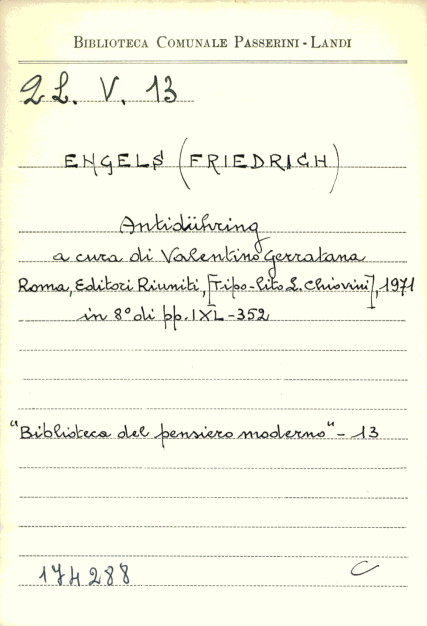 BIBLIOTECA COMUNALE PASSERINI - LANDI
2 L. V. 13
ENGELS (FRIEDRICH)
Antidühring
a cura di Valentino Gerratana
Roma, Editori Riuniti, [Tipo-lito L. Chiovini], 1971
in 8° di pp. IXL-352
"Biblioteca del pensiero moderno" - 13
174288
C